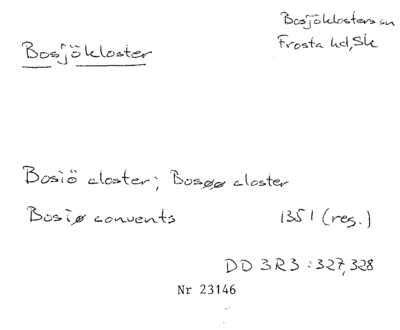 Bosjöklosters sn
Frosta hd, Sk
Bosjökloster
Bosiö closter; Bosøø closter
Bosiø convents 1351 (reg.)
DD 3R3:327,328
Nr 23146